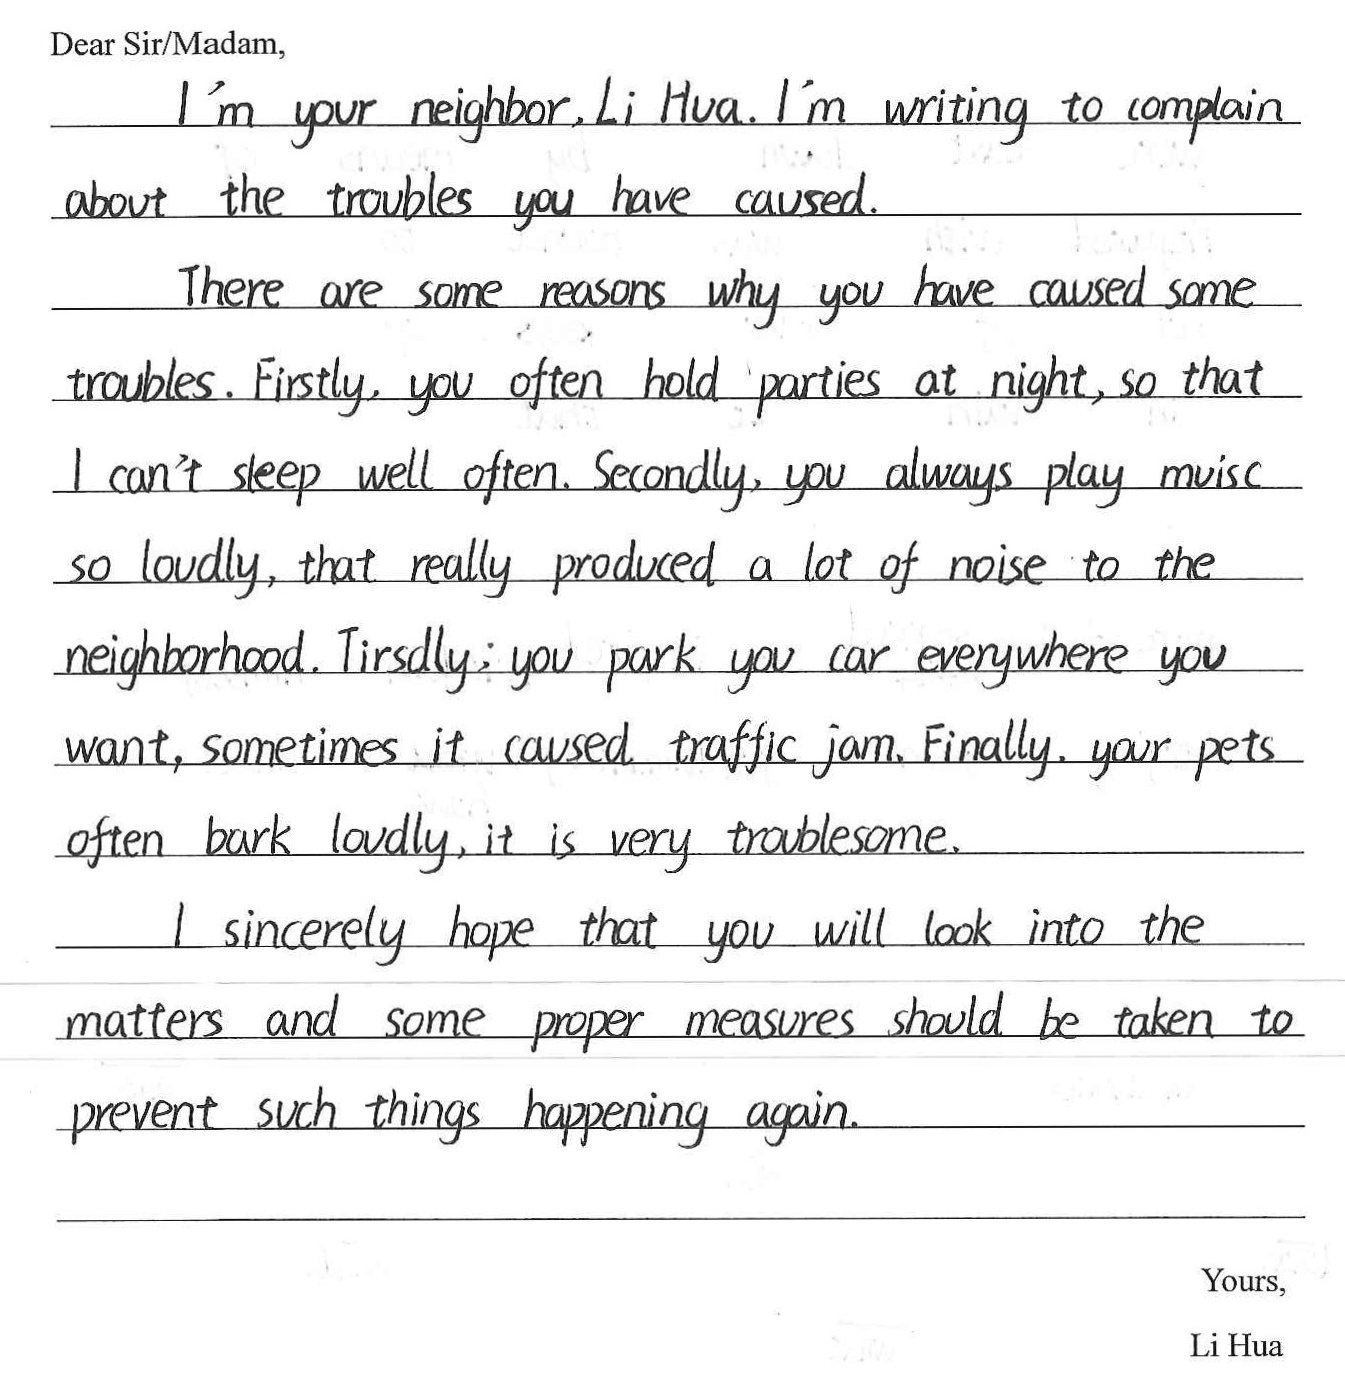 Dear Sir/Madam,
I'm your neighbor, Li Hua. I'm writing to complain
about the troubles you have caused.
There are some reasons why you have caused some
troubles. Firstly, you often hold parties at night, so that
I can't sleep well often. Secondly, you always play muisc
so loudly, that really produced a lot of noise to the
neighborhood. Tirsdly; you park you car everywhere you
want, sometimes it caused traffic jam. Finally, your pets
often bark loudly, it is very troublesome.
I sincerely hope that you will look into the
matters and some proper measures should be taken to
prevent such things happening again.
Yours,
Li Hua